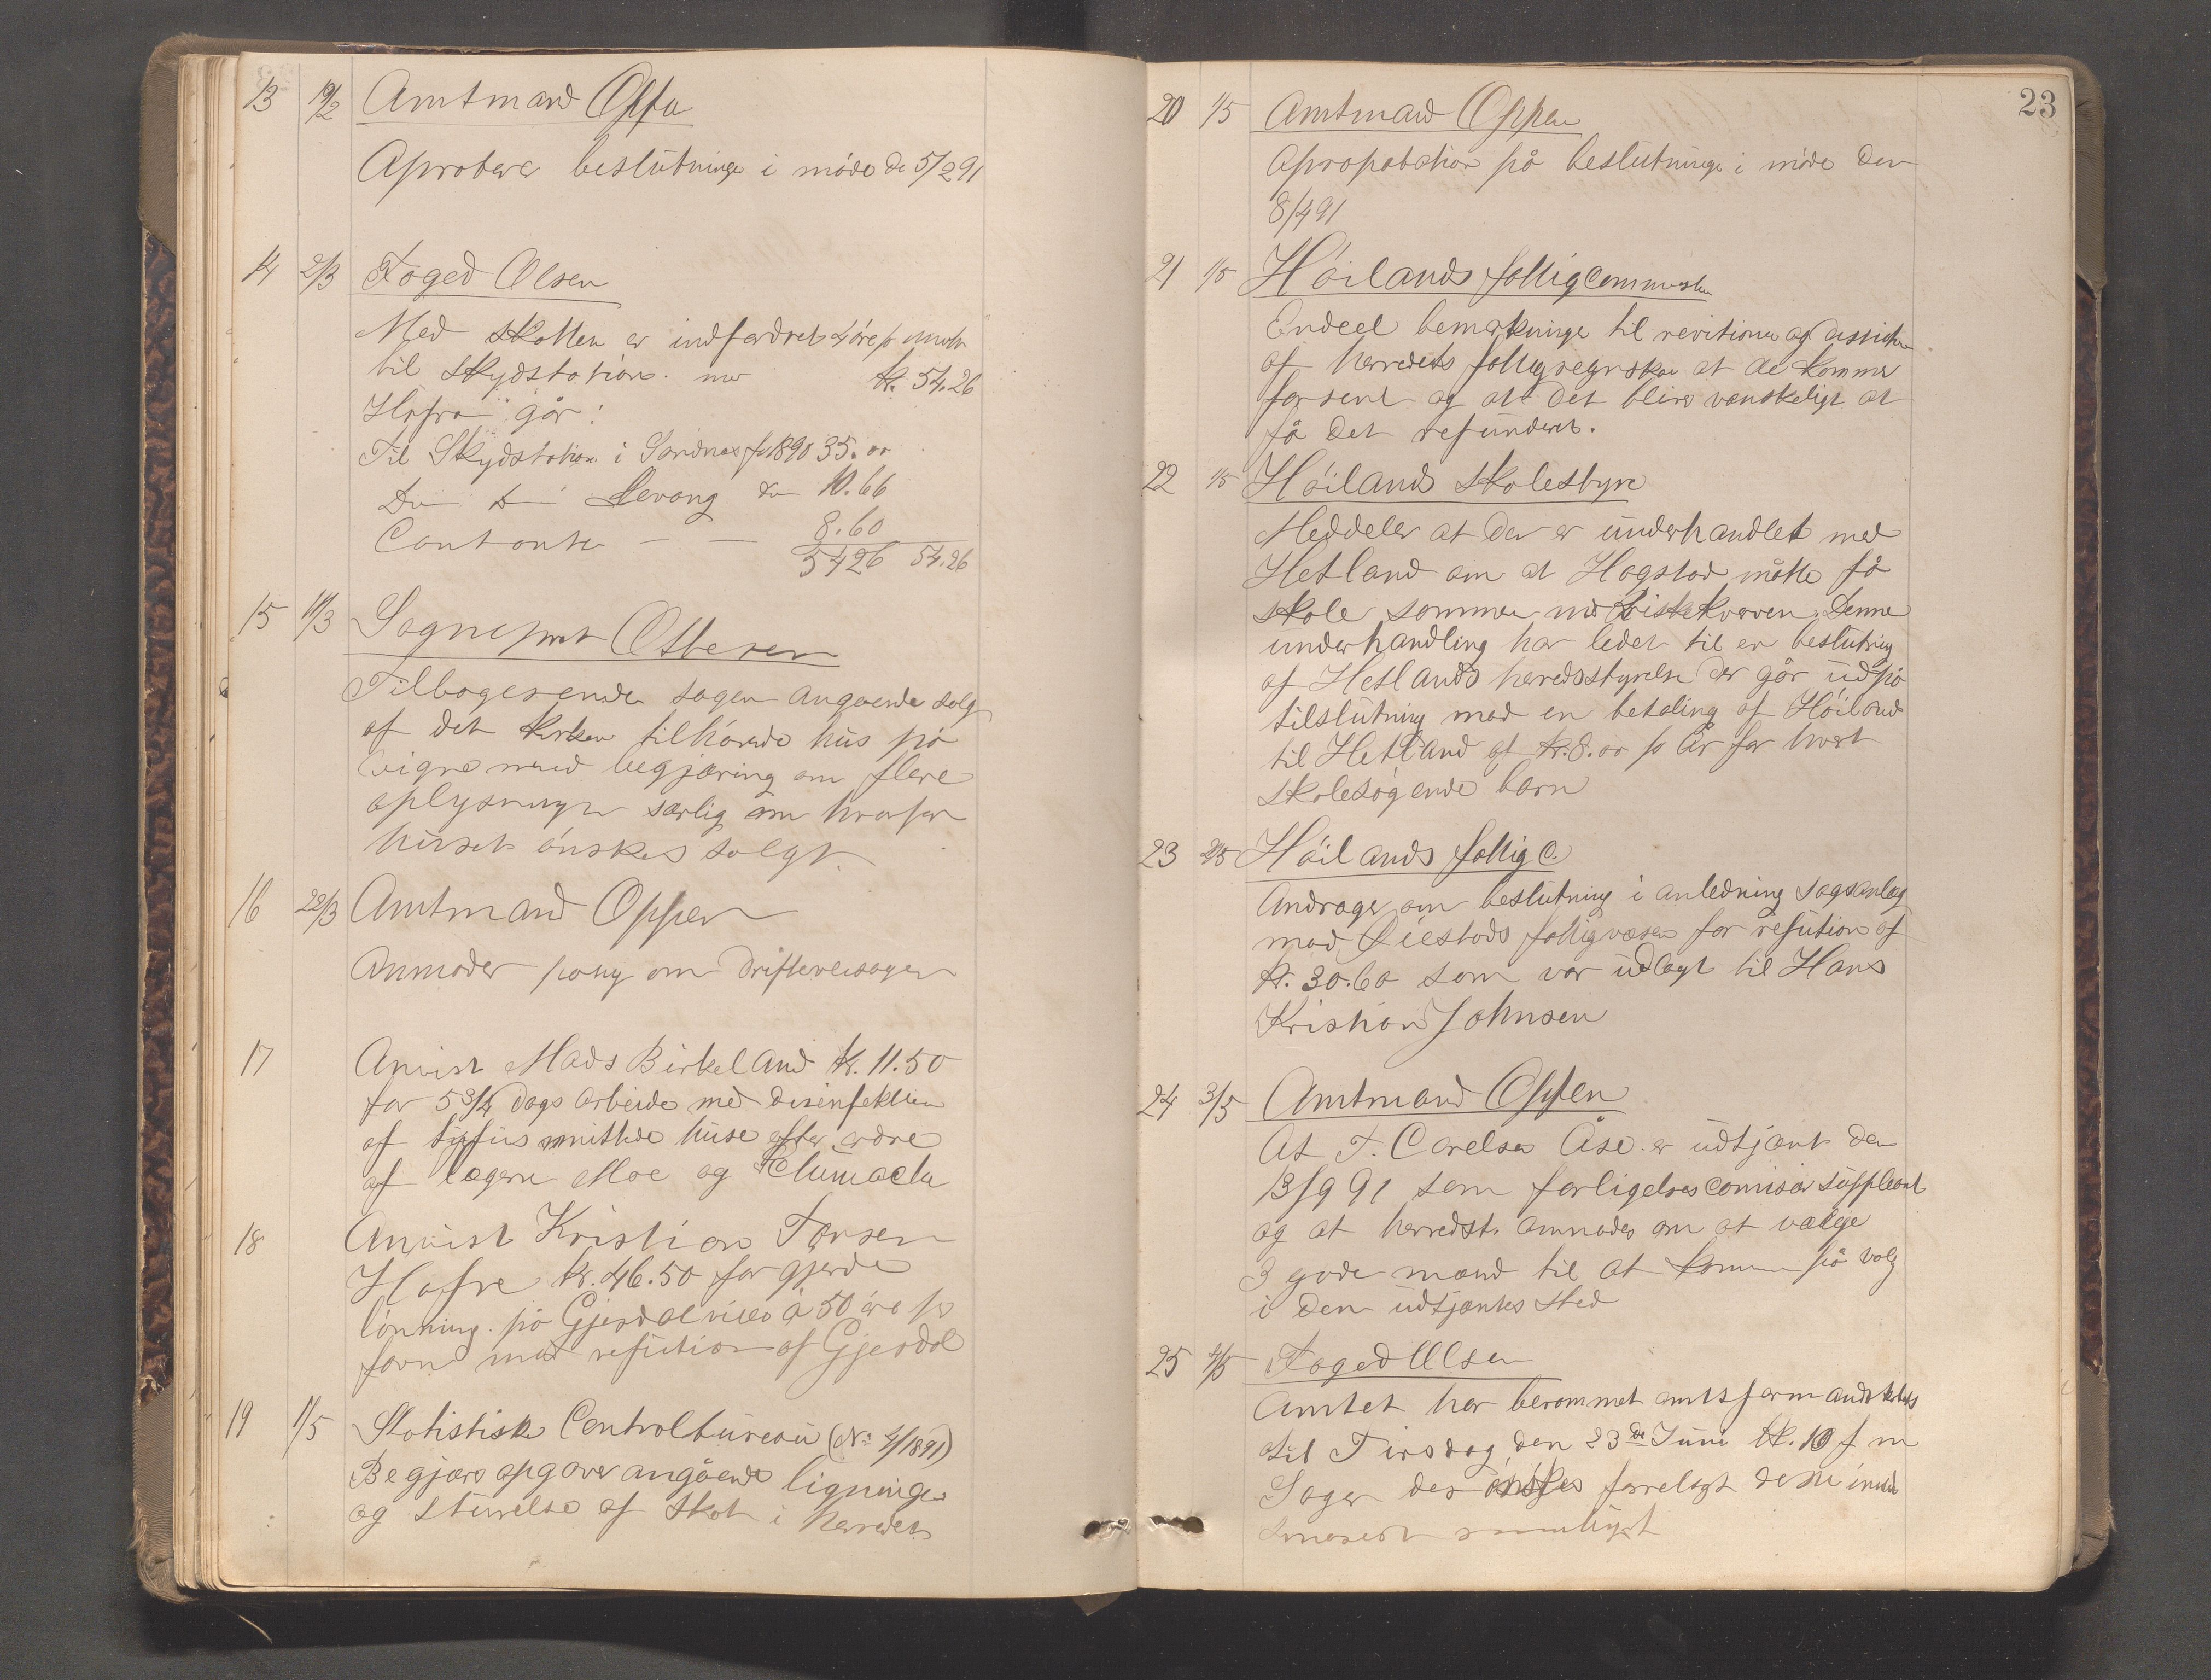 13 19/2 Amtmand Oppen
Aproberer beslutninger i møde de 5/2 91
14 2/3 Foged Olsen
Med skatten er indfordret 4 øre pr
til skydstation. kr. 54.26
Herfra går:
Til Skydstation i Sandnes for 1890 35.00
Do Do Levang Do 10.66
Contanter — — 8.60
5426 54.26
15 11/3 Sogneprest
Tilbagesender sagen angaaende salg
af det kirken tilhørende hus på
Vigre med begjæring om flere
oplysninger særlig om hvorfor
huset ønskes solgt.
16 22/3 Amtmand Oppen
Anmoder om Drifteveisagen
17 Anvist Mads Birkeland kr. 11.50
for 5 3/4 Dags arbeide med Desinfektion
af tyfus smittede huse efter ordre
af lægerne Moe og
18 Anvist Kristian Torsen
Hafre kr. 46.50 for gjerde
lønning. på Gjesdalveien à 50 øre pr
favn med refution af Gjesdal
19 1/5 Statistisk Centralbureau (No 4/1891)
Begjærer opgaver angående ligninger
og Størrelse af skat i herredet
23
20 1/5 Amtmand Oppen
Apropobation på beslutninger i møde den
8/4 91
21 1/5 Høilands fattigcommission
Endeel bemærkninger til revitionen og
af herredets fattigregnskab at de kommer
for sent og at det bliver vanskeligt at
få det refunderet.
22 1/5 Høilands Skolestyre
Meddeler at der er underhandlet med
Hetland om at Hogstad måtte få
skole sammen med Kristekverven. Denne
underhandling har ledet til en beslutning
af Hetlands heredsstyrelse der går ud på
tilslutning mod en betaling af Høiland
til Hetland af kr. 8.00 pr År for hvert
skolesøgende barn
23 2/5 Høilands fattig C.
Andrager om beslutning i anledning sagsanlæg
mod Øiestads fattigvæsen for refution af
kr. 30.60 som var udlagt til Hans
Kristian Johnsen
24 3/5 Amtmand Oppen
At T. Carelsen Åse er udtjent den
13/9 91 som forligelsescomisær suppleant
og at herredst. anmodes om at vælge
3 gode mænd til at komme på valg
i den udtjentes sted
25 4/5 Foged Olsen
Amtet har berammet amtsformandskabet
til Tirsdag den 23de Juni kl. 10 f m
Sager der ønskes forrelagt dem
snarest muligst